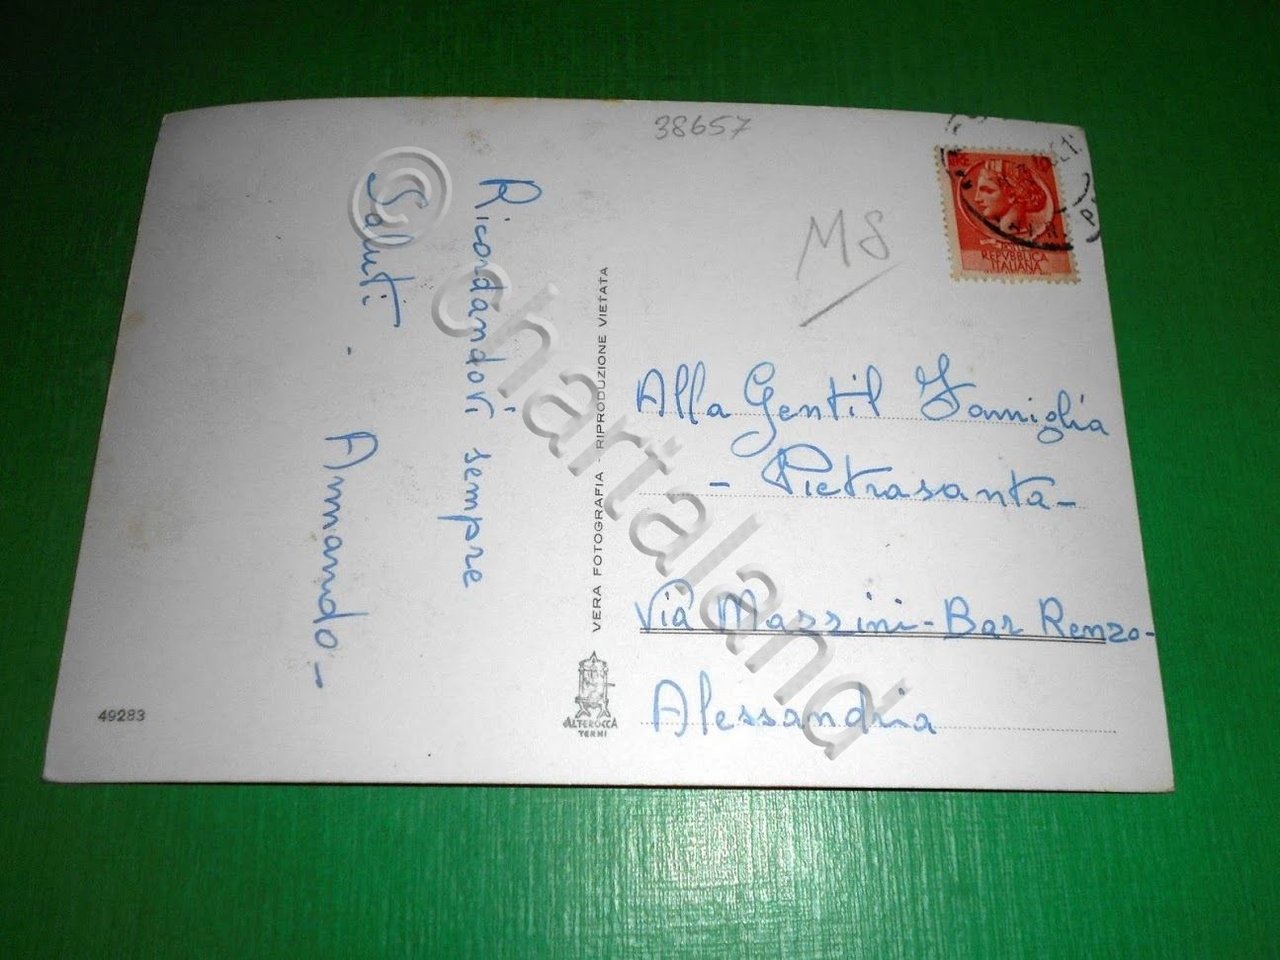 38657
MS
LIRE 10
POSTE
REPVBBLICA
ITALIANA
Ricordandovi sempre
Saluti.
Armando -
VERA FOTOGRAFIA - RIPRODUZIONE VIETATA
Alla Gentil Famiglia
- Pietrasanta -
Via Mazzini - Bar Renzo -
Alessandria
ALTEROCCA
TERNI
49283
© chartaland